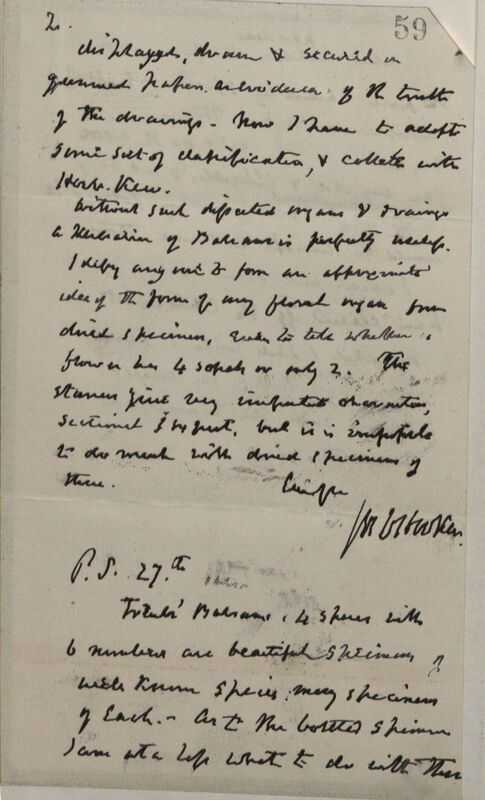 2.
59
displayed, drawn & secured on
gummed paper as evidence of the truth
of the drawings. Now I have to adopt
some sort of classification, & collate with
Herb. Kew.
Without such dissected organs & drawings
a Herbarium of Balsams is perfectly useless.
I defy any one to form an approximate
idea of the form of any floral organ from
dried specimens, even to tell whether a
flower has 4 sepals or only 2. The
stamens give very important characters,
sectional I suspect, but it is impossible
to do much with dried specimens of
these.
Jos D Hooker.
P.S. 27.th
Balsams, 4 species with
6 numbers are beautiful specimens of
well known species, many specimens
of each. - As to the bottled specimens
I am at a loss what to do with them